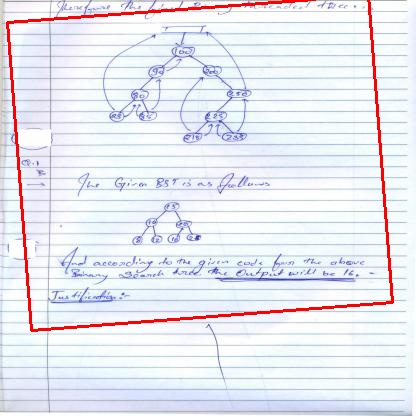 Therefore the final Binary threaded tree..
100
90
200
80
250
225
Q.1
B
The Given BST is as follows
15
10
20
8
12
16
25
And according to the given code from the above
Binary Search tree. the Output will be 16. -
Justification:-